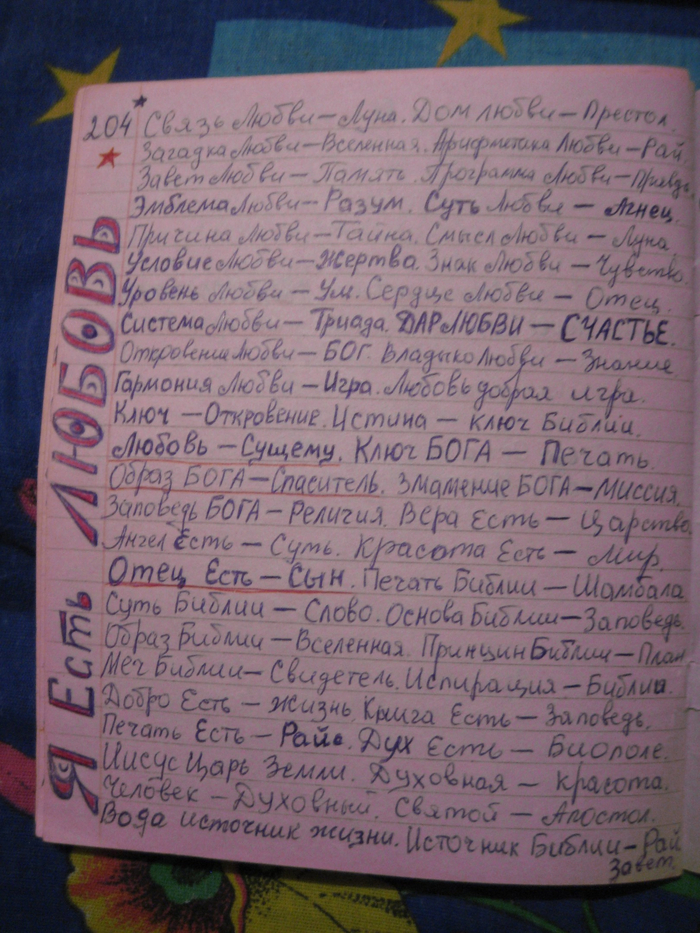 204 Связь Любви — Луна. Дом любви — Престол.
Загадка Любви — Вселенная. Арифметика Любви — Рай
Завет Любви — Память. Программа Любви —
Эмблема Любви — Разум. Суть Любви — Агнец.
Причина Любви — Тайна. Смысл Любви — Луна
Условие Любви — Жертва. Знак Любви — Чувство.
Уровень Любви — Ум. Сердце Любви — Отец.
Система Любви — Триада. ДАР ЛЮБВИ — СЧАСТЬЕ.
Откровение Любви — БОГ. Владыко Любви — Знание
Гармония Любви — Игра. Любовь добрая игра.
Ключ — Откровение. Истина — ключ Библии.
Любовь — Сущему. Ключ БОГА — Печать.
Образ БОГА — Спаситель. Знамение БОГА — Миссия.
Заповедь БОГА — Религия. Вера Есть — Царство.
Ангел Есть — Суть. Красота Есть — Мир.
Отец Есть — Сын. Печать Библии — Шамбала
Суть Библии — Слово. Основа Библии — Заповедь.
Образ Библии — Вселенная. Принцип Библии — План
Меч Библии — Свидетель. Испирация — Библии
Добро Есть — Жизнь. Книга Есть — Заповедь.
Печать Есть — Дух Есть — Биополе.
Иисус Царь Земли. Духовная — красота.
Человек — Духовный. Святой — Апостол.
Вода источник жизни. Источник Библии — Рай
Завет.
Я Есть ЛЮБОВЬ